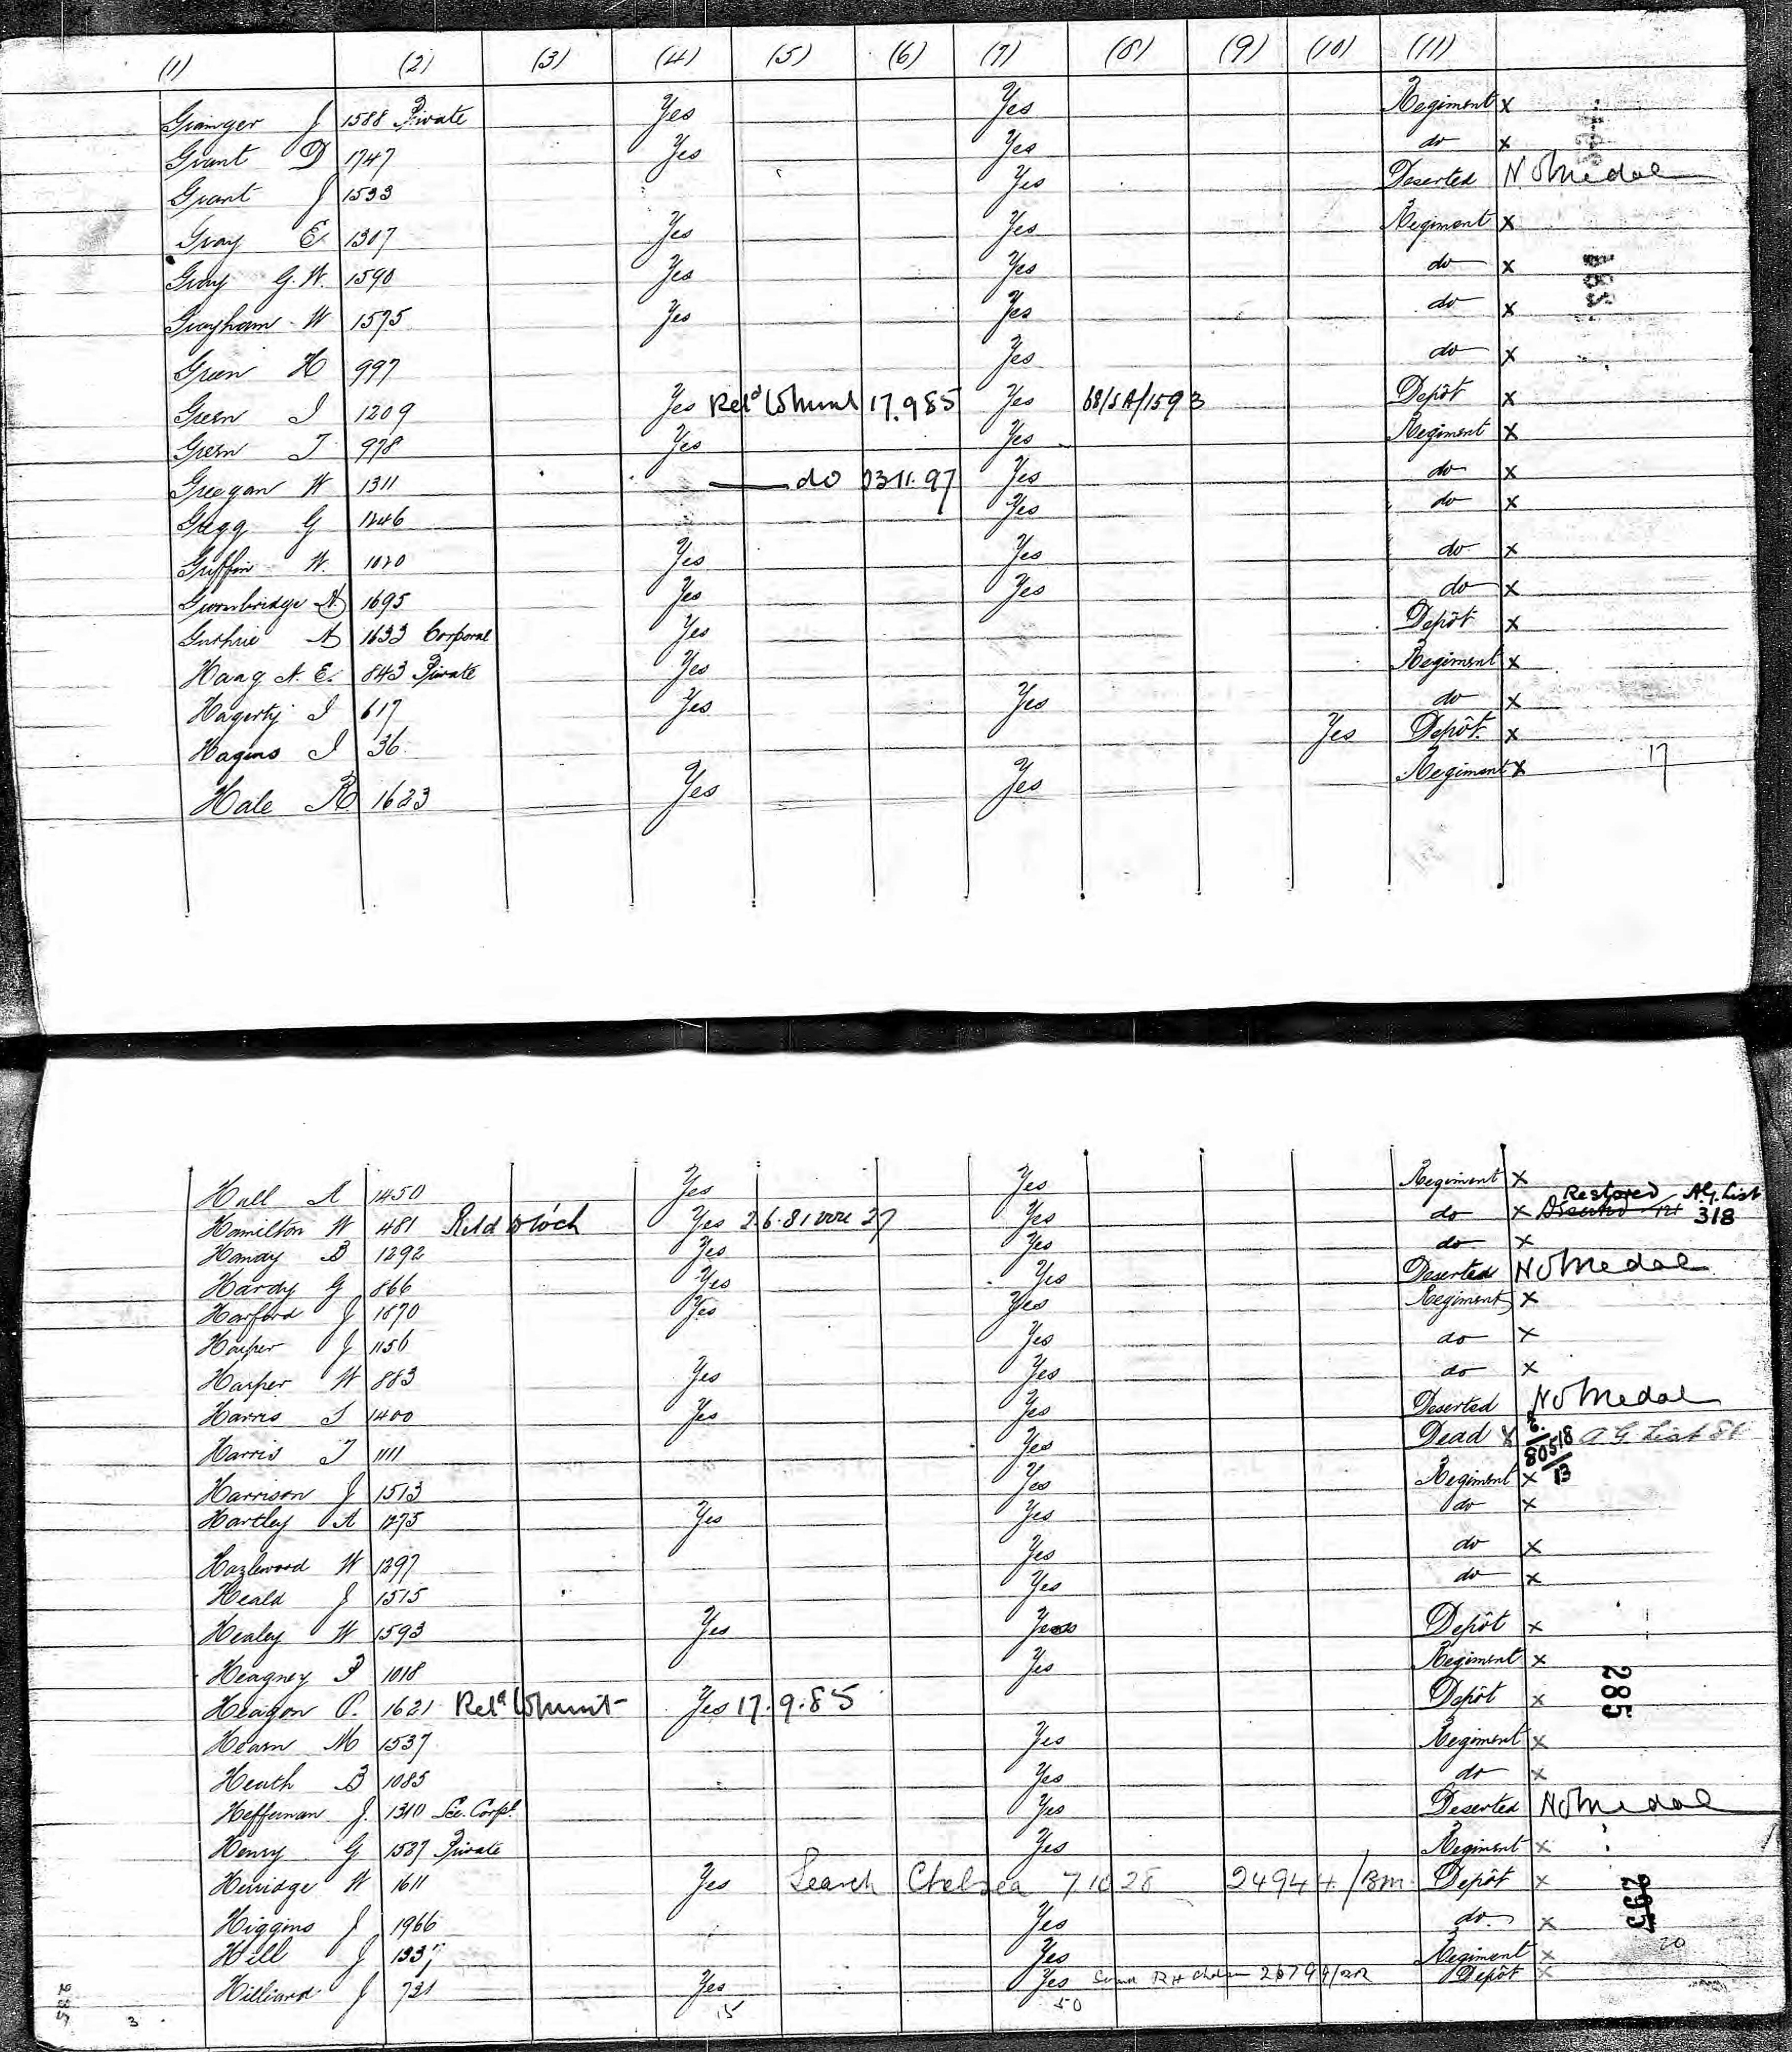 (1) (2) (3) (4) (5) (6) (7) (8) (9) (10) (11)
Grainger J 1588 Private Yes Yes Regiment x
Grant D 1747 Yes Yes do x
Grant J 1533 Yes Deserted No Medal
Gray E 1307 Yes Yes Regiment x
Gray G.W. 1590 Yes Yes do x
Grayham W 1575 Yes Yes do x
Green H 997 Yes do x
Green J 1209 Yes Retd 17.9.85 Yes 68/SA/1593 Depôt x
Green T 978 Yes Yes Regiment x
Greegan W 1311 do 23.11.97 Yes do x
Gregg G 1246 Yes do x
Griffin W. 1020 Yes Yes do x
1695 Yes Yes do x
Guthrie A 1633 Corporal Yes Depôt x
Haag A. E. 843 Private Yes Regiment x
Hagerty J 617 Yes Yes do x
Hagins J 36 Yes Depôt x
Hale R 1623 Yes Yes Regiment x
17
Hall A 1450 Yes Yes Regiment x
Hamilton W 481 Retd Yes 2.6.81 Yes do x Restored A.G. List 318
B 1292 Yes Yes do x
Hardy G 866 Yes Yes Deserted No Medal
Harford J 1070 Yes Yes Regiment x
Harper J 1156 Yes do x
Harper W 883 Yes Yes do x
Harris J 1400 Yes Yes Deserted No Medal
Harris T 1111 Yes Dead x A.G. List
Harrison J 1513 Yes Regiment x
Hartley A 1275 Yes Yes do x
Hazlewood W 1297 Yes do x
Heald J 1515 Yes do x
Healey W 1593 Yes Yes Depôt x
Heagney P 1018 Yes Regiment x
Heagon P. 1621 Retd Yes 17.9.85 Depôt x
285
Hearn M 1537 Yes Regiment x
Heath B 1085 Yes do x
Heffernan J. 1310 Lce. Corpl. Yes Deserted No Medal
Henry G 1587 Private Yes Regiment x
Herridge W 1611 Yes Search Chelsea 7 10 28 24944/BM Depôt x
295
Higgins J 1966 Yes do x
Hill J Yes Regiment x
20
Hilliard J 731 Yes Yes Depôt x
15 50
285
3